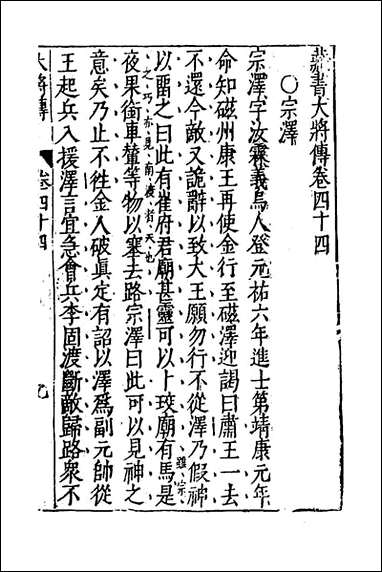 藏書大將傳卷四十四
○宗澤
宗澤字汝霖義烏人登元祐六年進士第靖康元年
命知磁州康王再使金行至磁澤迎謁曰肅王一去
不還今敵又詭辭以致大王願勿行不從澤乃假神
雖宗
以畱之曰此有崔府君廟甚靈可以卜珓廟有馬是
之巧亦見南渡者天也
夜果銜車輦等物以塞去路宗澤曰此可以見神之
意矣乃止不徃金人破眞定有詔以澤爲副元帥從
王起兵入援澤言宜急會兵李固渡斷敵歸路衆不
大將傳 卷四十四